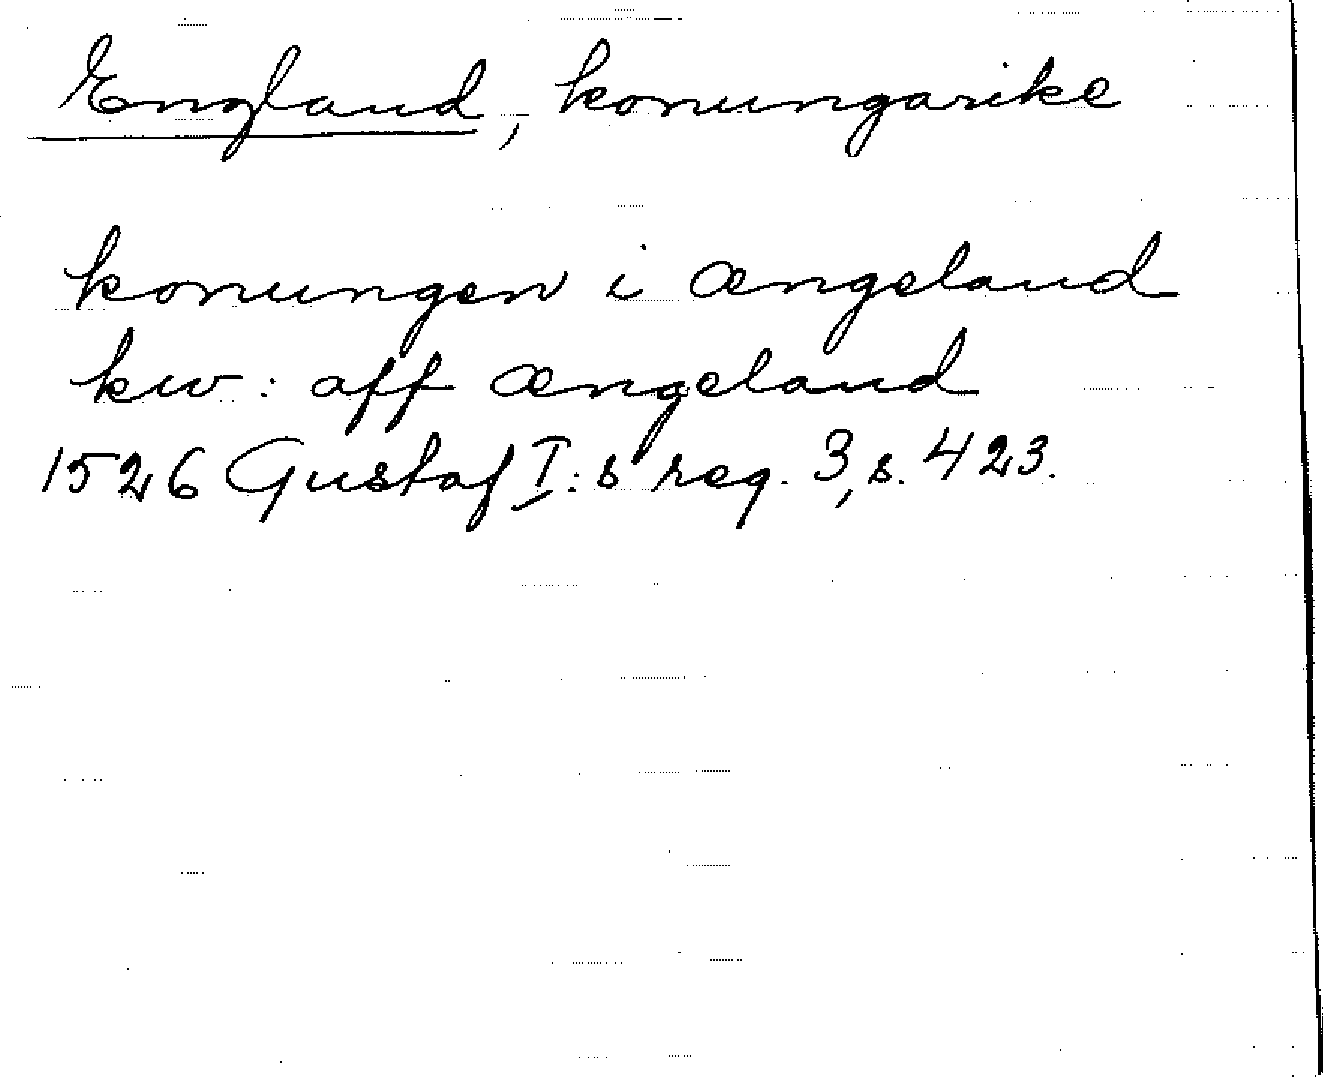 England, konungarike
konungen i ængeland
kw: aff ængeland
1526 Gustaf I:s reg. 3, s. 423.